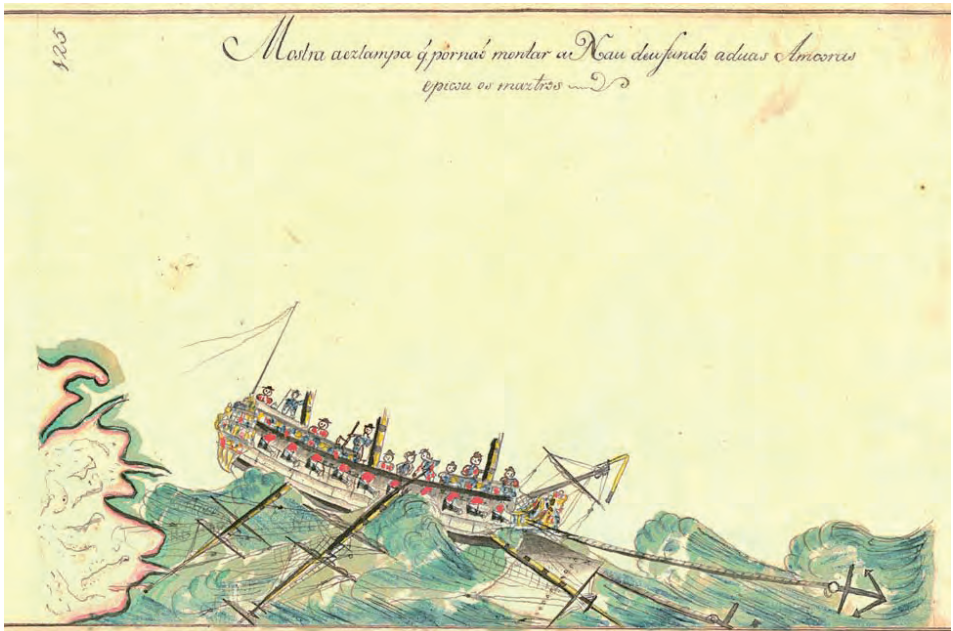 125
Mostra aeztampa q̃ pornaõ montar a Nau deu fundo aduas Amcoras
epicou os maztros